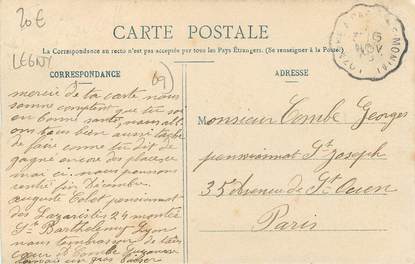 20€
LEGNY
69
CARTE POSTALE
La Correspondance en recto n'est pas acceptée par tous les Pays Étrangers. (Se renseigner à la Poste.)
CORRESPONDANCE
ADRESSE
mercie de ta carte nous
somme comptent que tu soi
en bonne santé, nous
allons bien aussi tache
de faire comme tu dit de
gagné encore des places
mai ci nous pouvons
rentré fin Décembre
auguste pensionnat
des Lazaristes 24 montée
St Barthelemy Lyon
nous tembrasson de tout
cœur Combe
un gros Baiser
Monsieur Combe Georges
pensionnat St Joseph
35 avenue de St Ouen
Paris
16
NOV